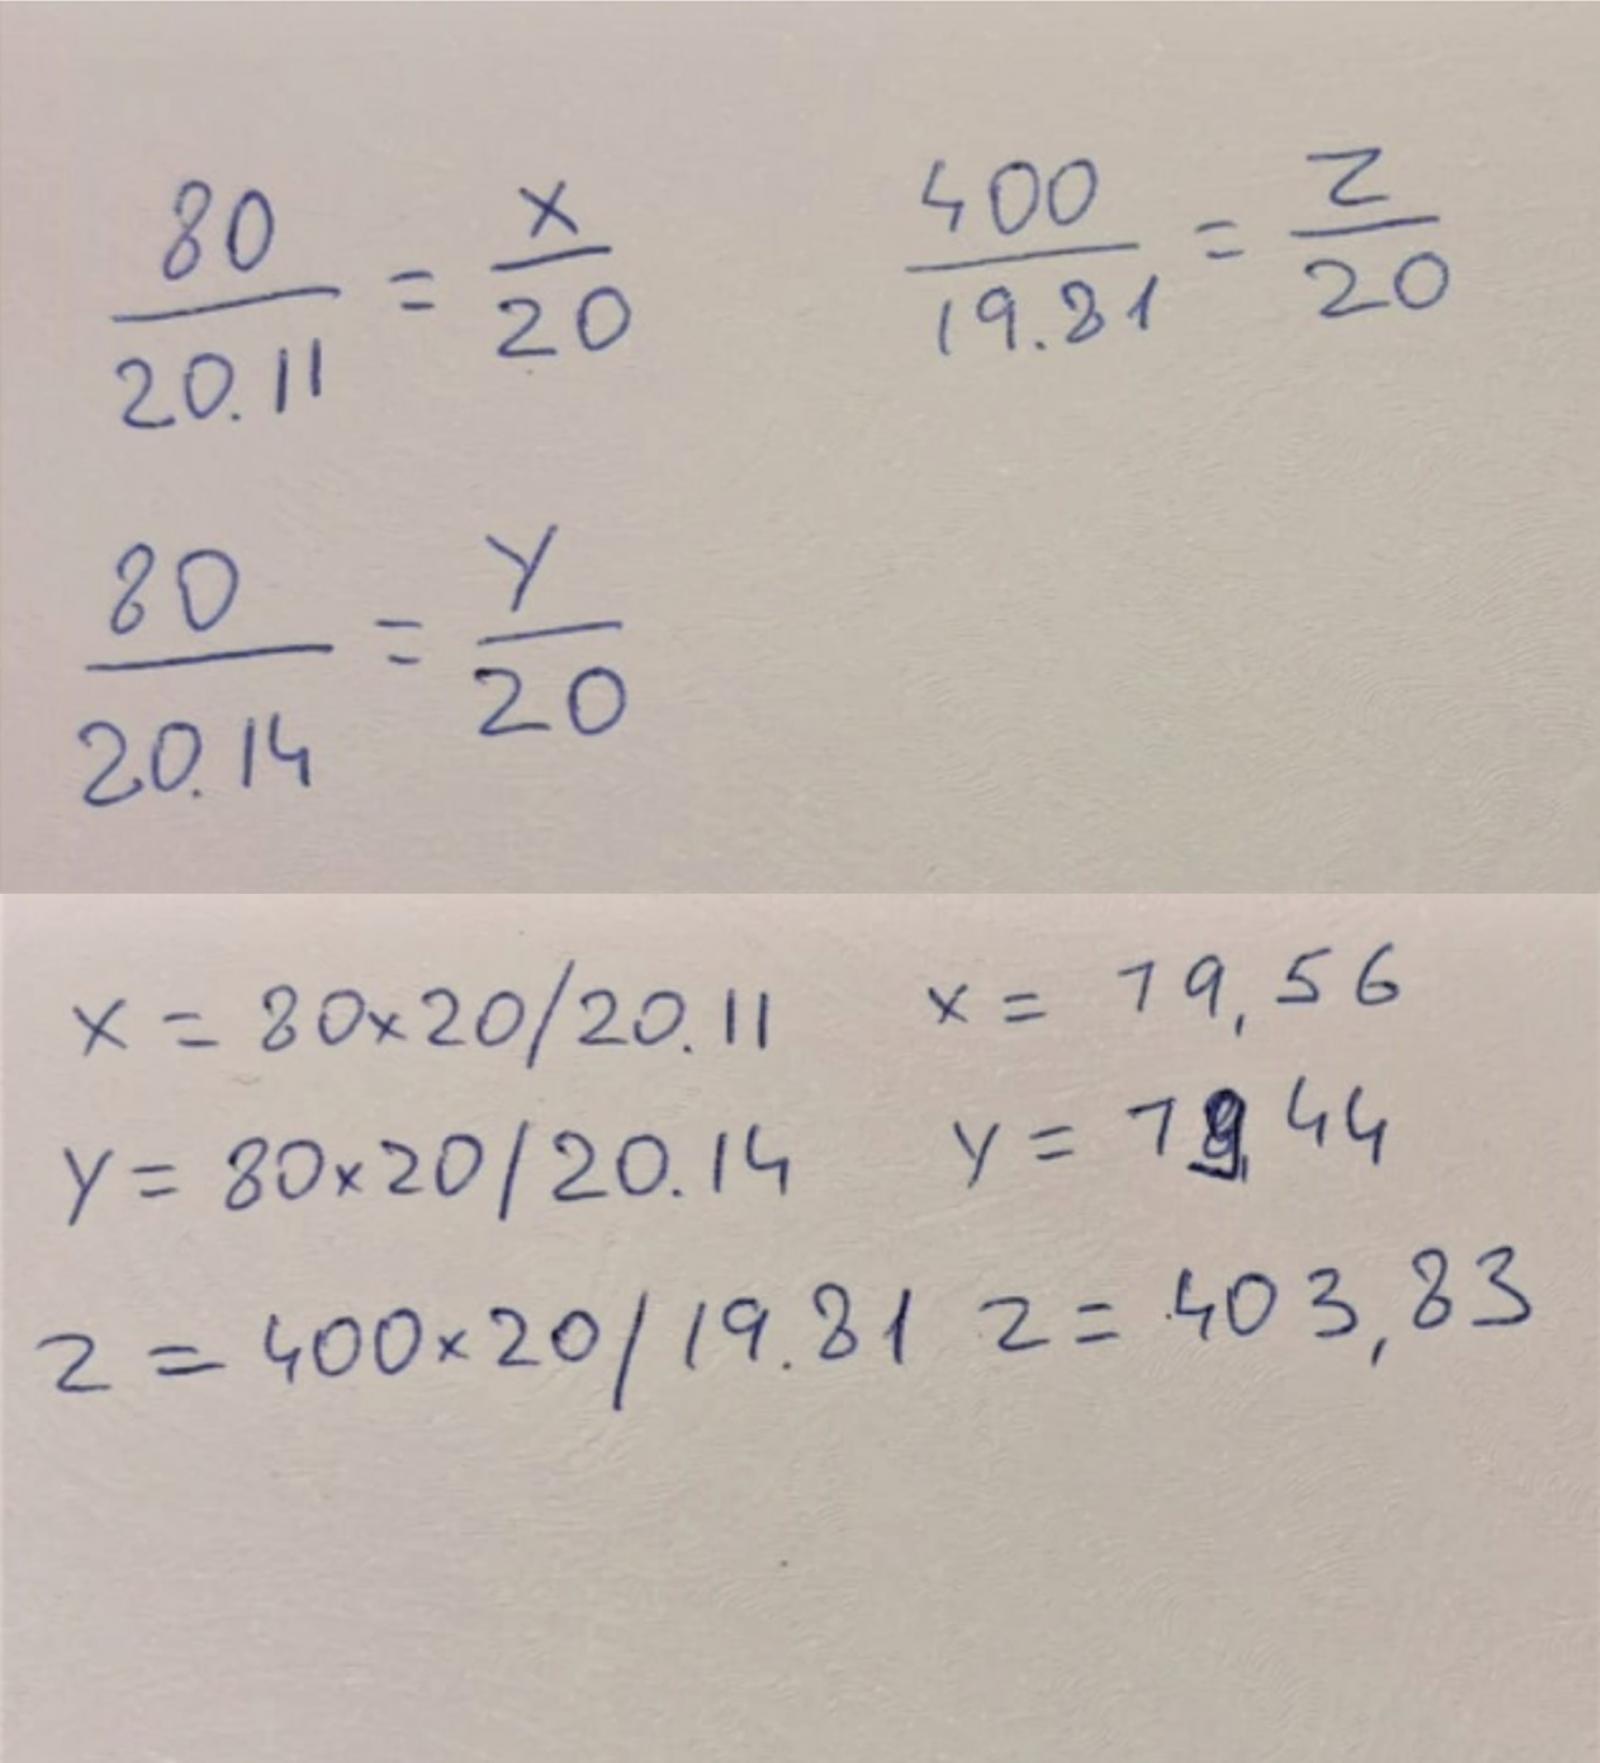 80/20.11 = x/20
400/19.81 = z/20
80/20.14 = y/20
x = 80×20/20.11 x = 79,56
y = 80×20/20.14 y = 79,44
z = 400×20/19.81 z = 403,83